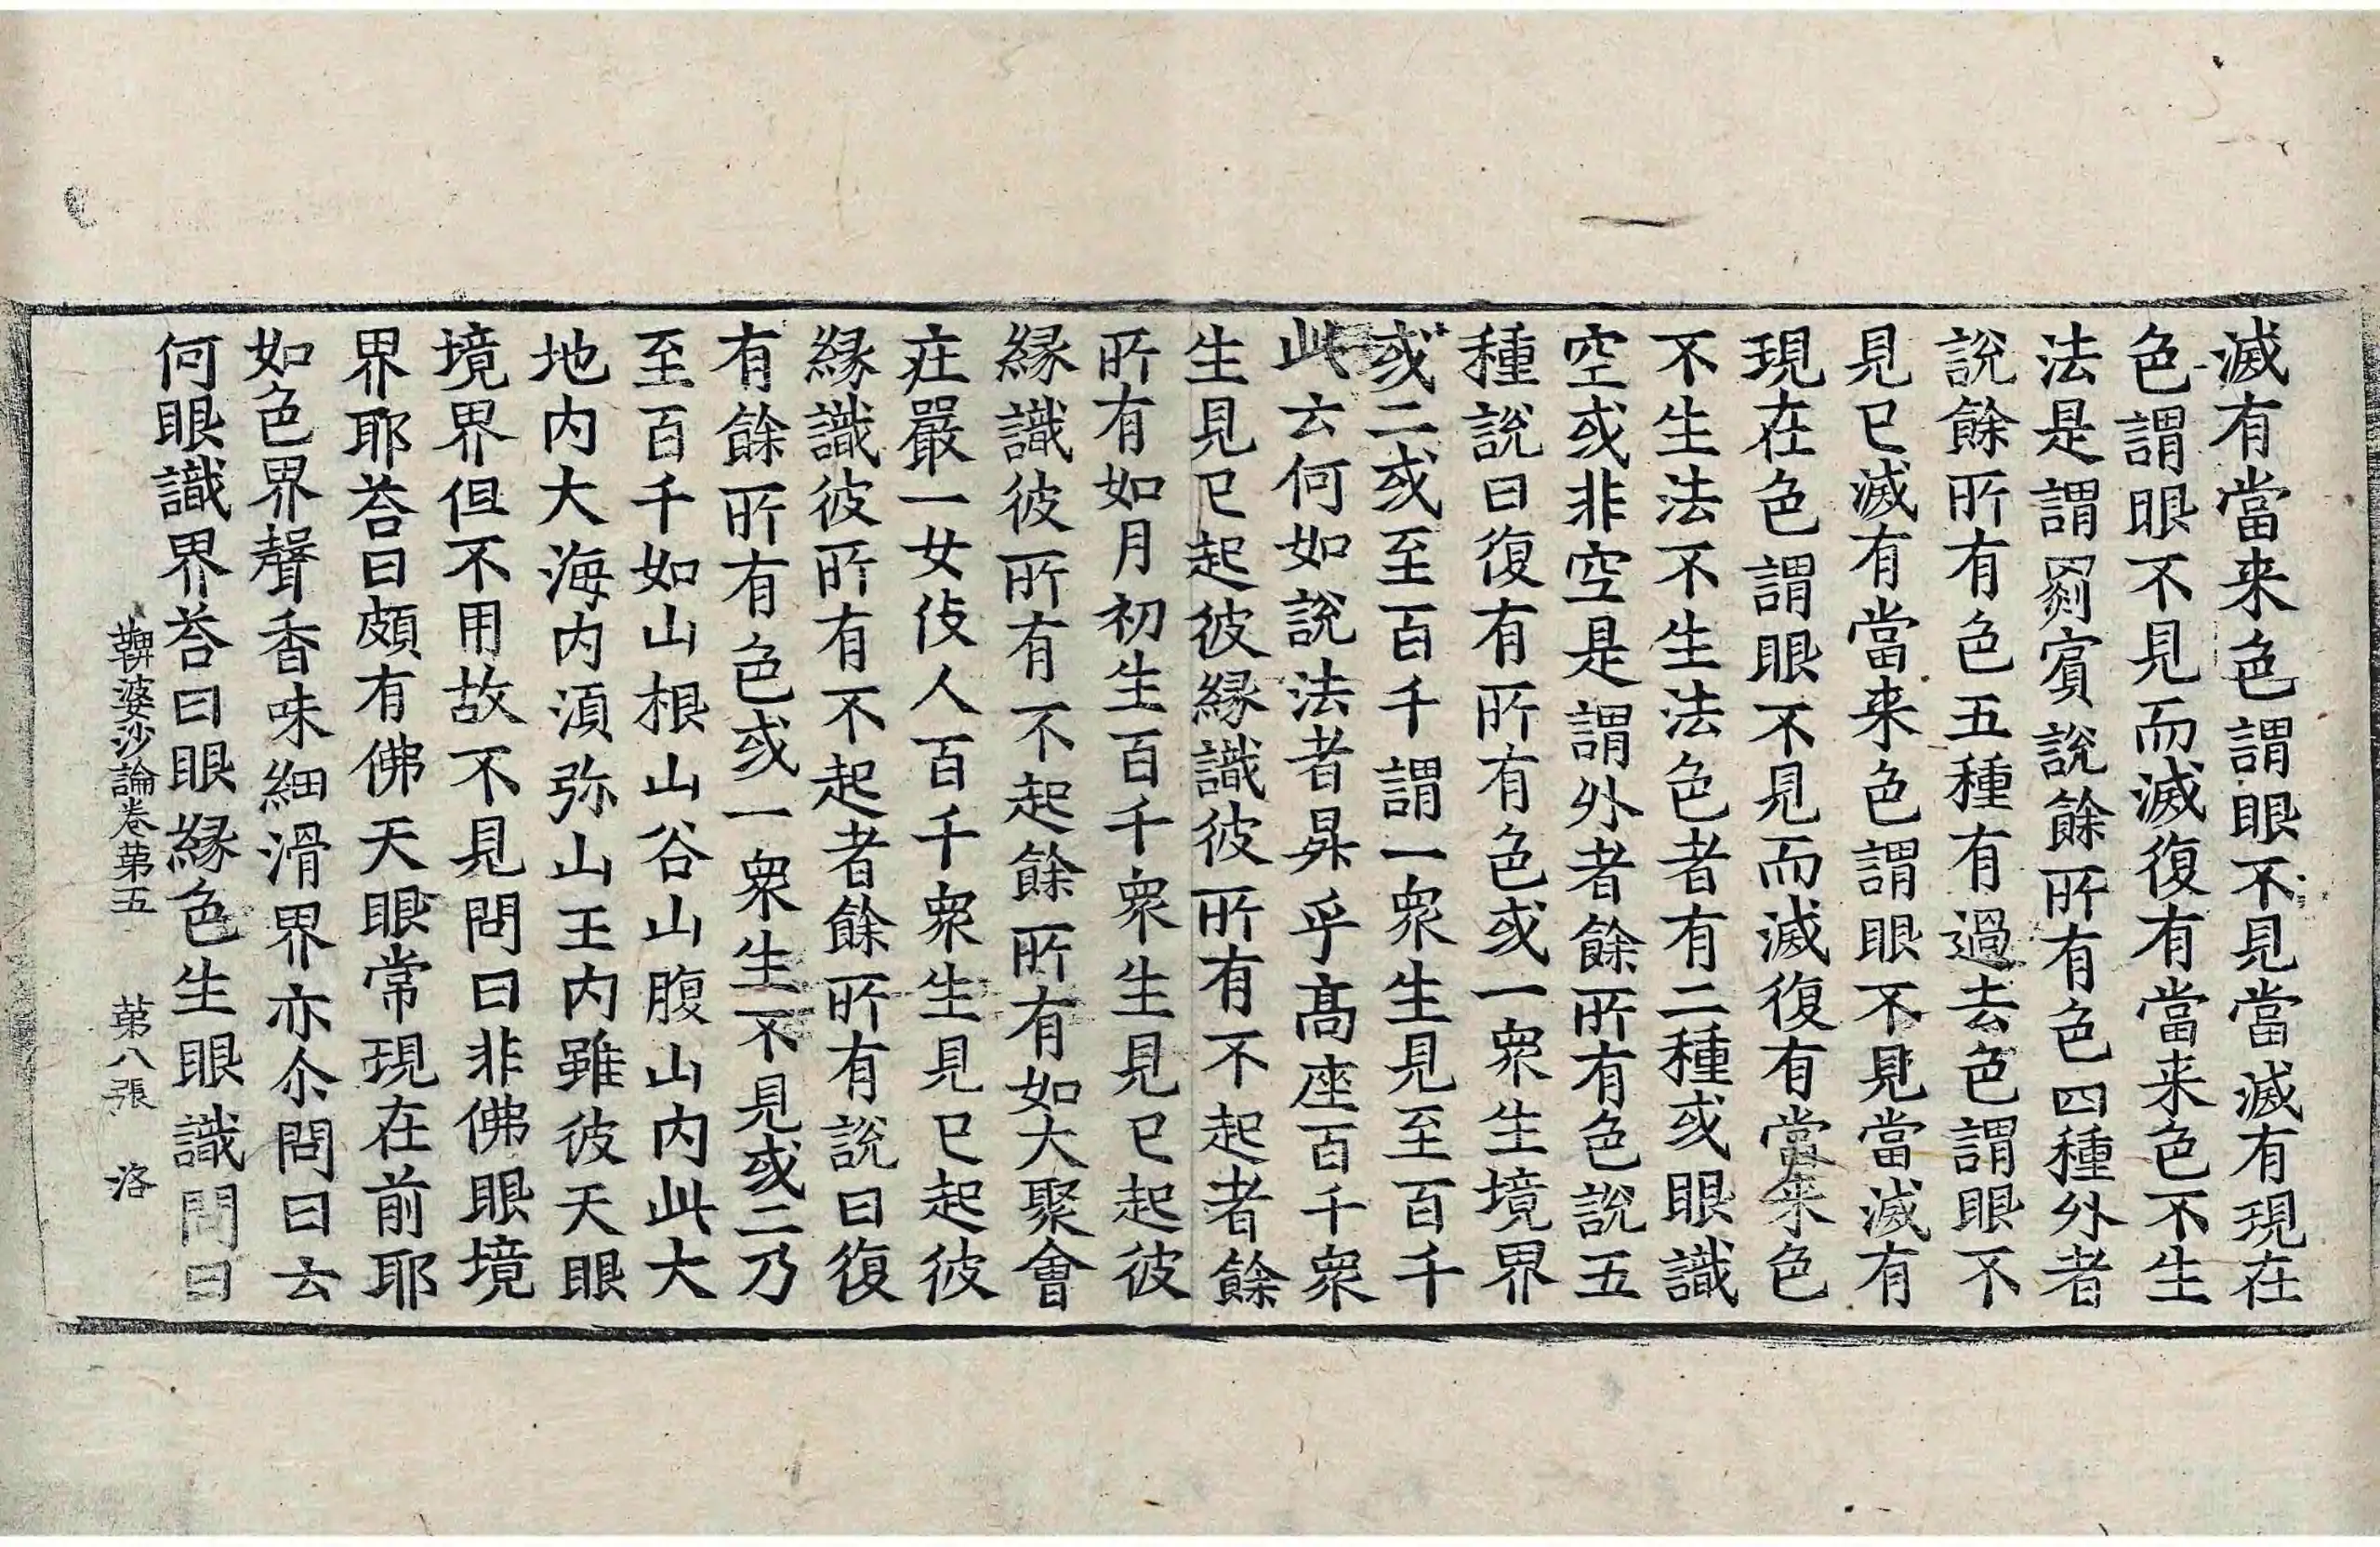 滅有當来色謂眼不見當滅有現在
色謂眼不見而滅復有當来色不生
法是謂罽賓說餘所有色四種外者
說餘所有色五種有過去色謂眼不
見已滅有當来色謂眼不見當滅有
現在色謂眼不見而滅復有當来色
不生法不生法色者有二種或眼識
空或非空是謂外者餘所有色說五
種說曰復有所有色或一衆生境界
或二或至百千謂一衆生見至百千
此云何如說法者昇乎髙座百千衆
生見已起彼緣識彼所有不起者餘
所有如月初生百千衆生見已起彼
緣識彼所有不起餘所有如大聚會
庄嚴一女伎人百千衆生見已起彼
緣識彼所有不起者餘所有說曰復
有餘所有色或一衆生不見或二乃
至百千如山根山谷山腹山内此大
地内大海内湏弥山王内雖彼天眼
境界但不用故不見問曰非佛眼境
界耶荅曰頗有佛天眼常現在前耶
如色界聲香味細滑界亦尒問曰云
何眼識界荅曰眼緣色生眼識問曰
鞞婆沙論卷苐五 苐八張 洛